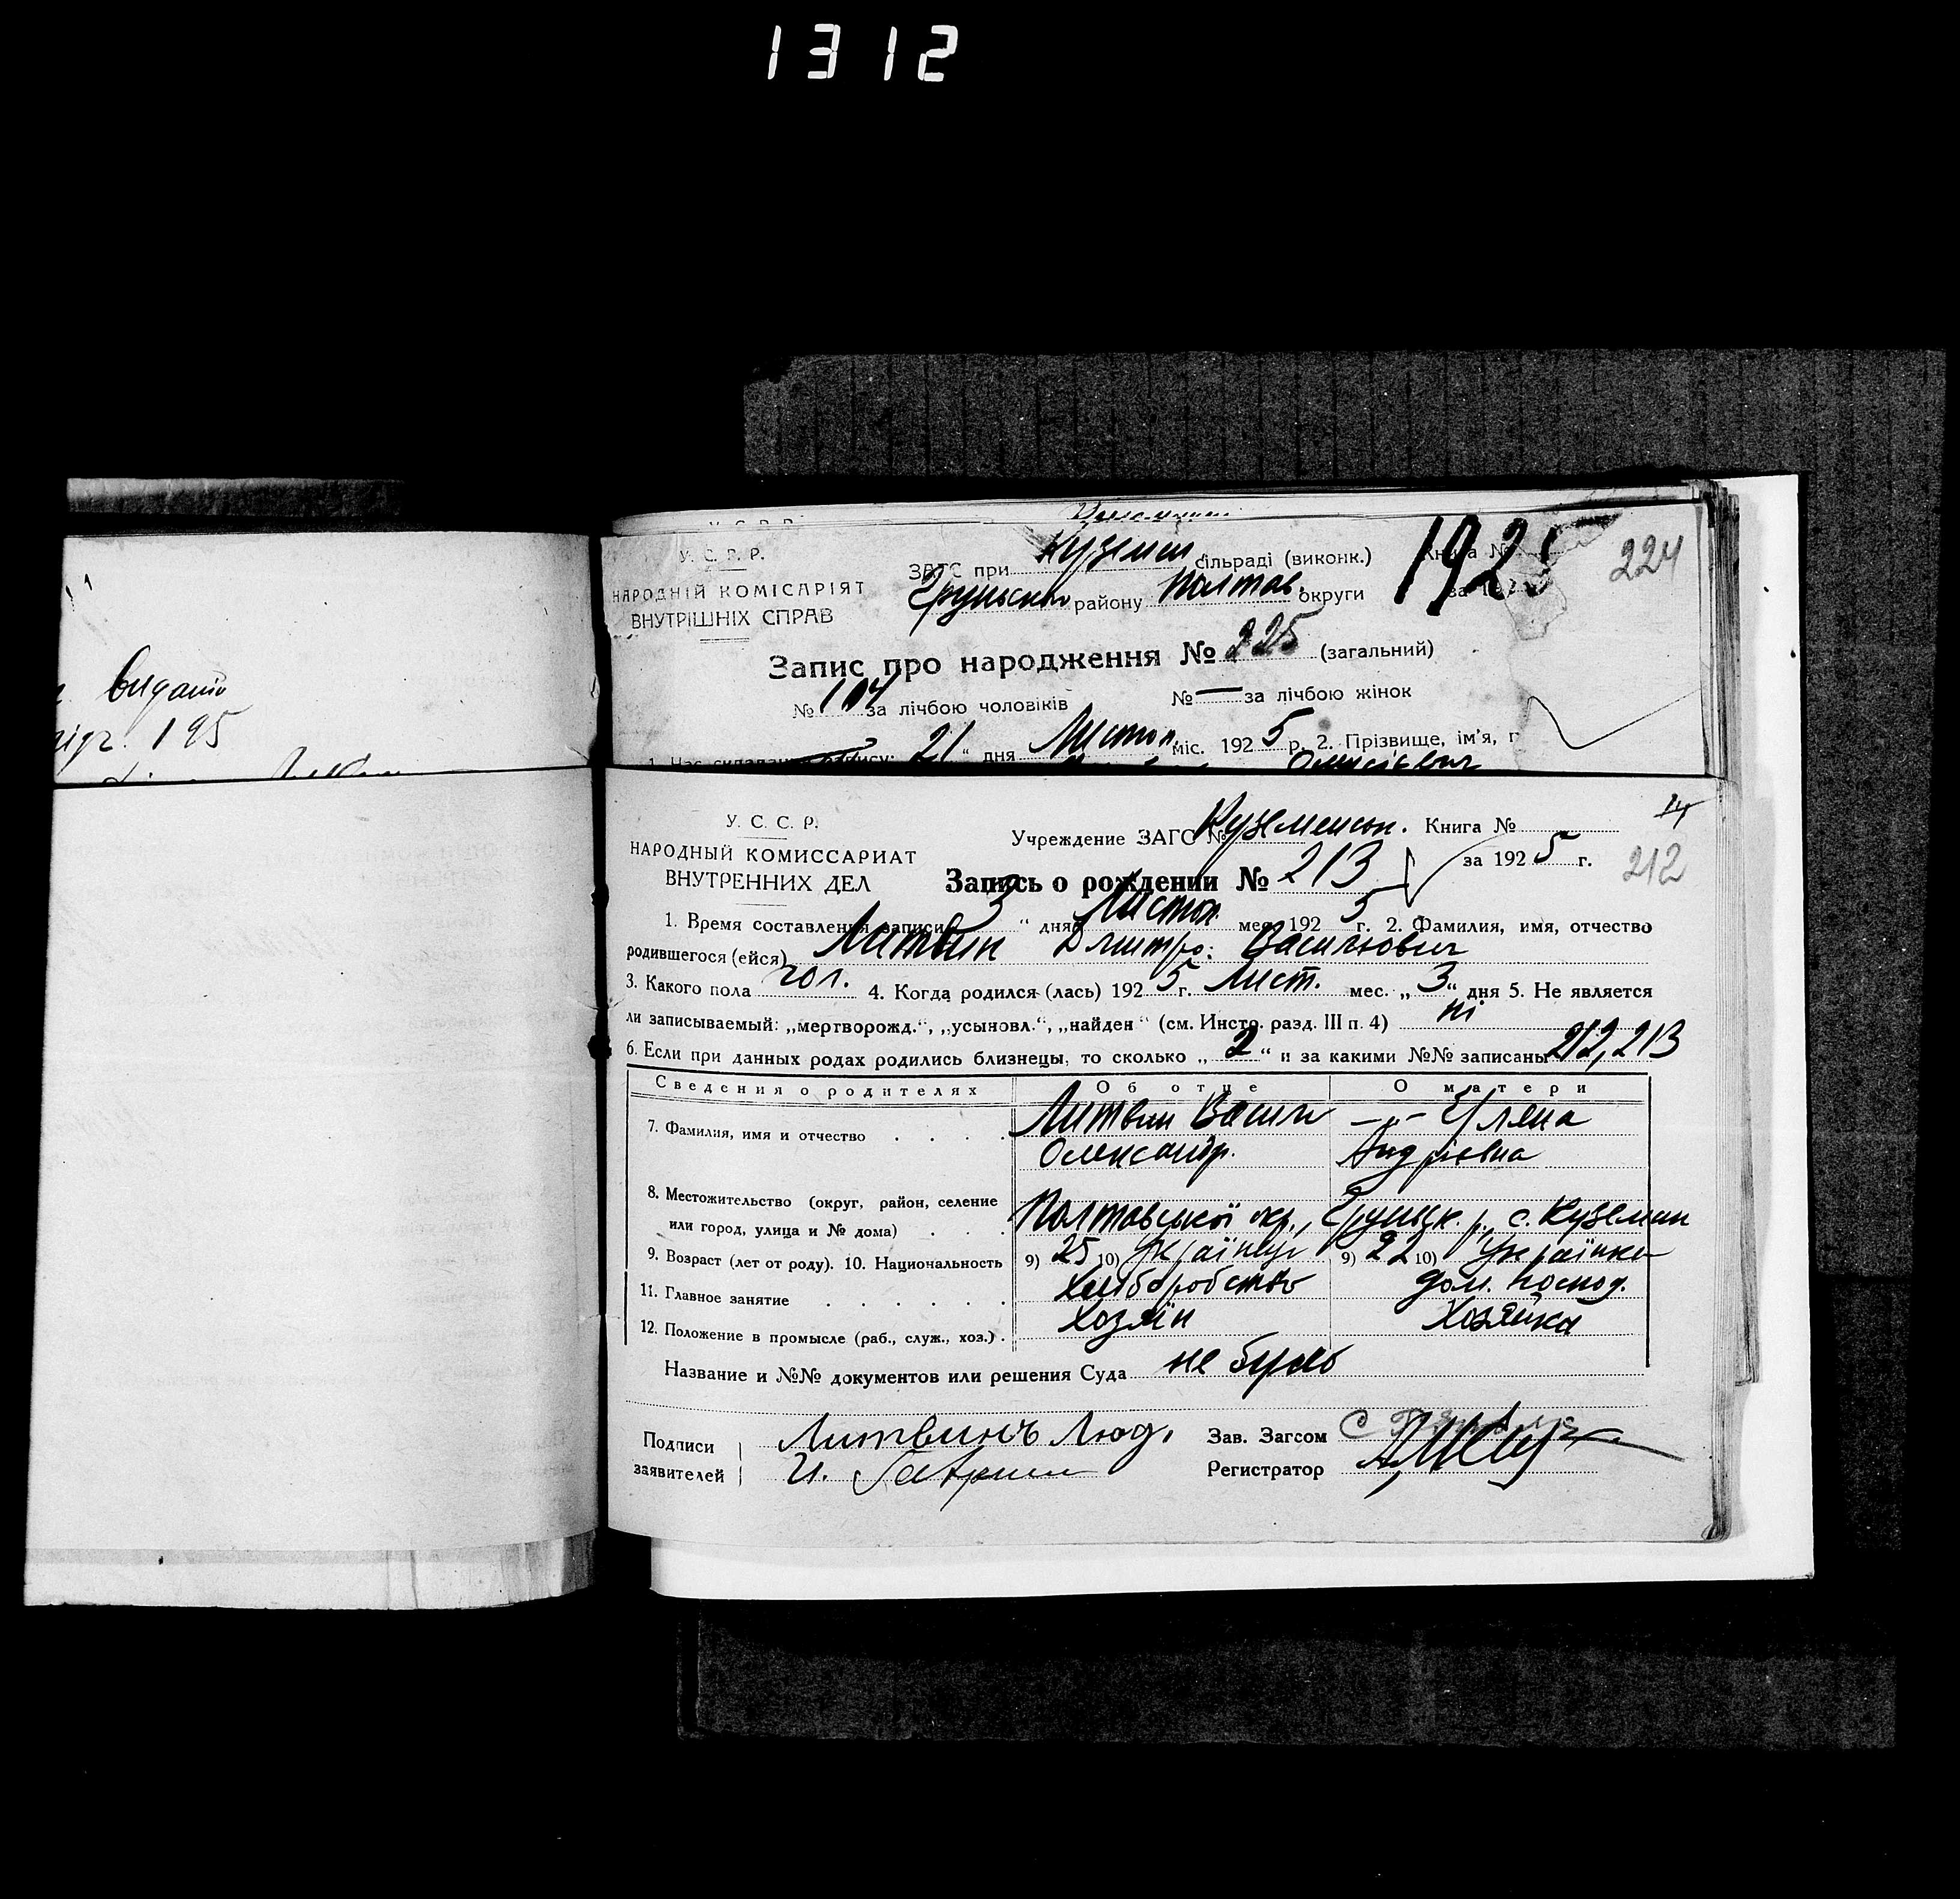 1312
видано
195
У. С. Р. Р.
НАРОДНІЙ КОМІСАРІЯТ
ВНУТРІШНІХ СПРАВ
ЗАГС при Куземен сільраді (виконк.) Книга №
району Полтав. округи 1925 224
Запис про народження № 225 (загальний)
№ 104 за лічбою чоловіків № — за лічбою жінок
21 “ дня Листоп. міс. 1925 р. 2. Прізвище, ім'я,
У. С. С. Р.
НАРОДНЫЙ КОМИССАРИАТ
ВНУТРЕННИХ ДЕЛ
Учреждение ЗАГС № Куземенсн. Книга №
за 1925 г. 212
Запись о рождении № 213
1. Время составления записи 3 “ дня Листоп. мес. 1925 г. 2. Фамилия, имя, отчество
родившегося (ейся) Литвин Дмитро. Васильович
3. Какого пола чол. 4. Когда родился (лась) 1925 г. Лист. мес. „ 3 “ дня 5. Не является
ли записываемый: „мертворожд.“, „усыновл.“, „найден“ (см. Инстр. разд. III п. 4) ні
6. Если при данных родах родились близнецы, то сколько „ 2 “ и за какими №№ записаны 212, 213
Сведения о родителях Об отце О матери
7. Фамилия, имя и отчество Литвин Василь —„—
Олександр. Андріевна
8. Местожительство (округ, район, селение
или город, улица и № дома) Полтавської окр., Груньск. р., с. Куземин
9. Возраст (лет от роду). 10. Национальность 9) 25 10) Українець 9) 22 10) Українка
11. Главное занятие Хліборобство дом. госпо́д.
12. Положение в промысле (раб., служ., хоз.) Хозяїн Хозяйка
Название и №№ документов или решения Суда не було
Подписи
заявителей
Литвинъ Люд.
И.
Зав. Загсом
Регистратор